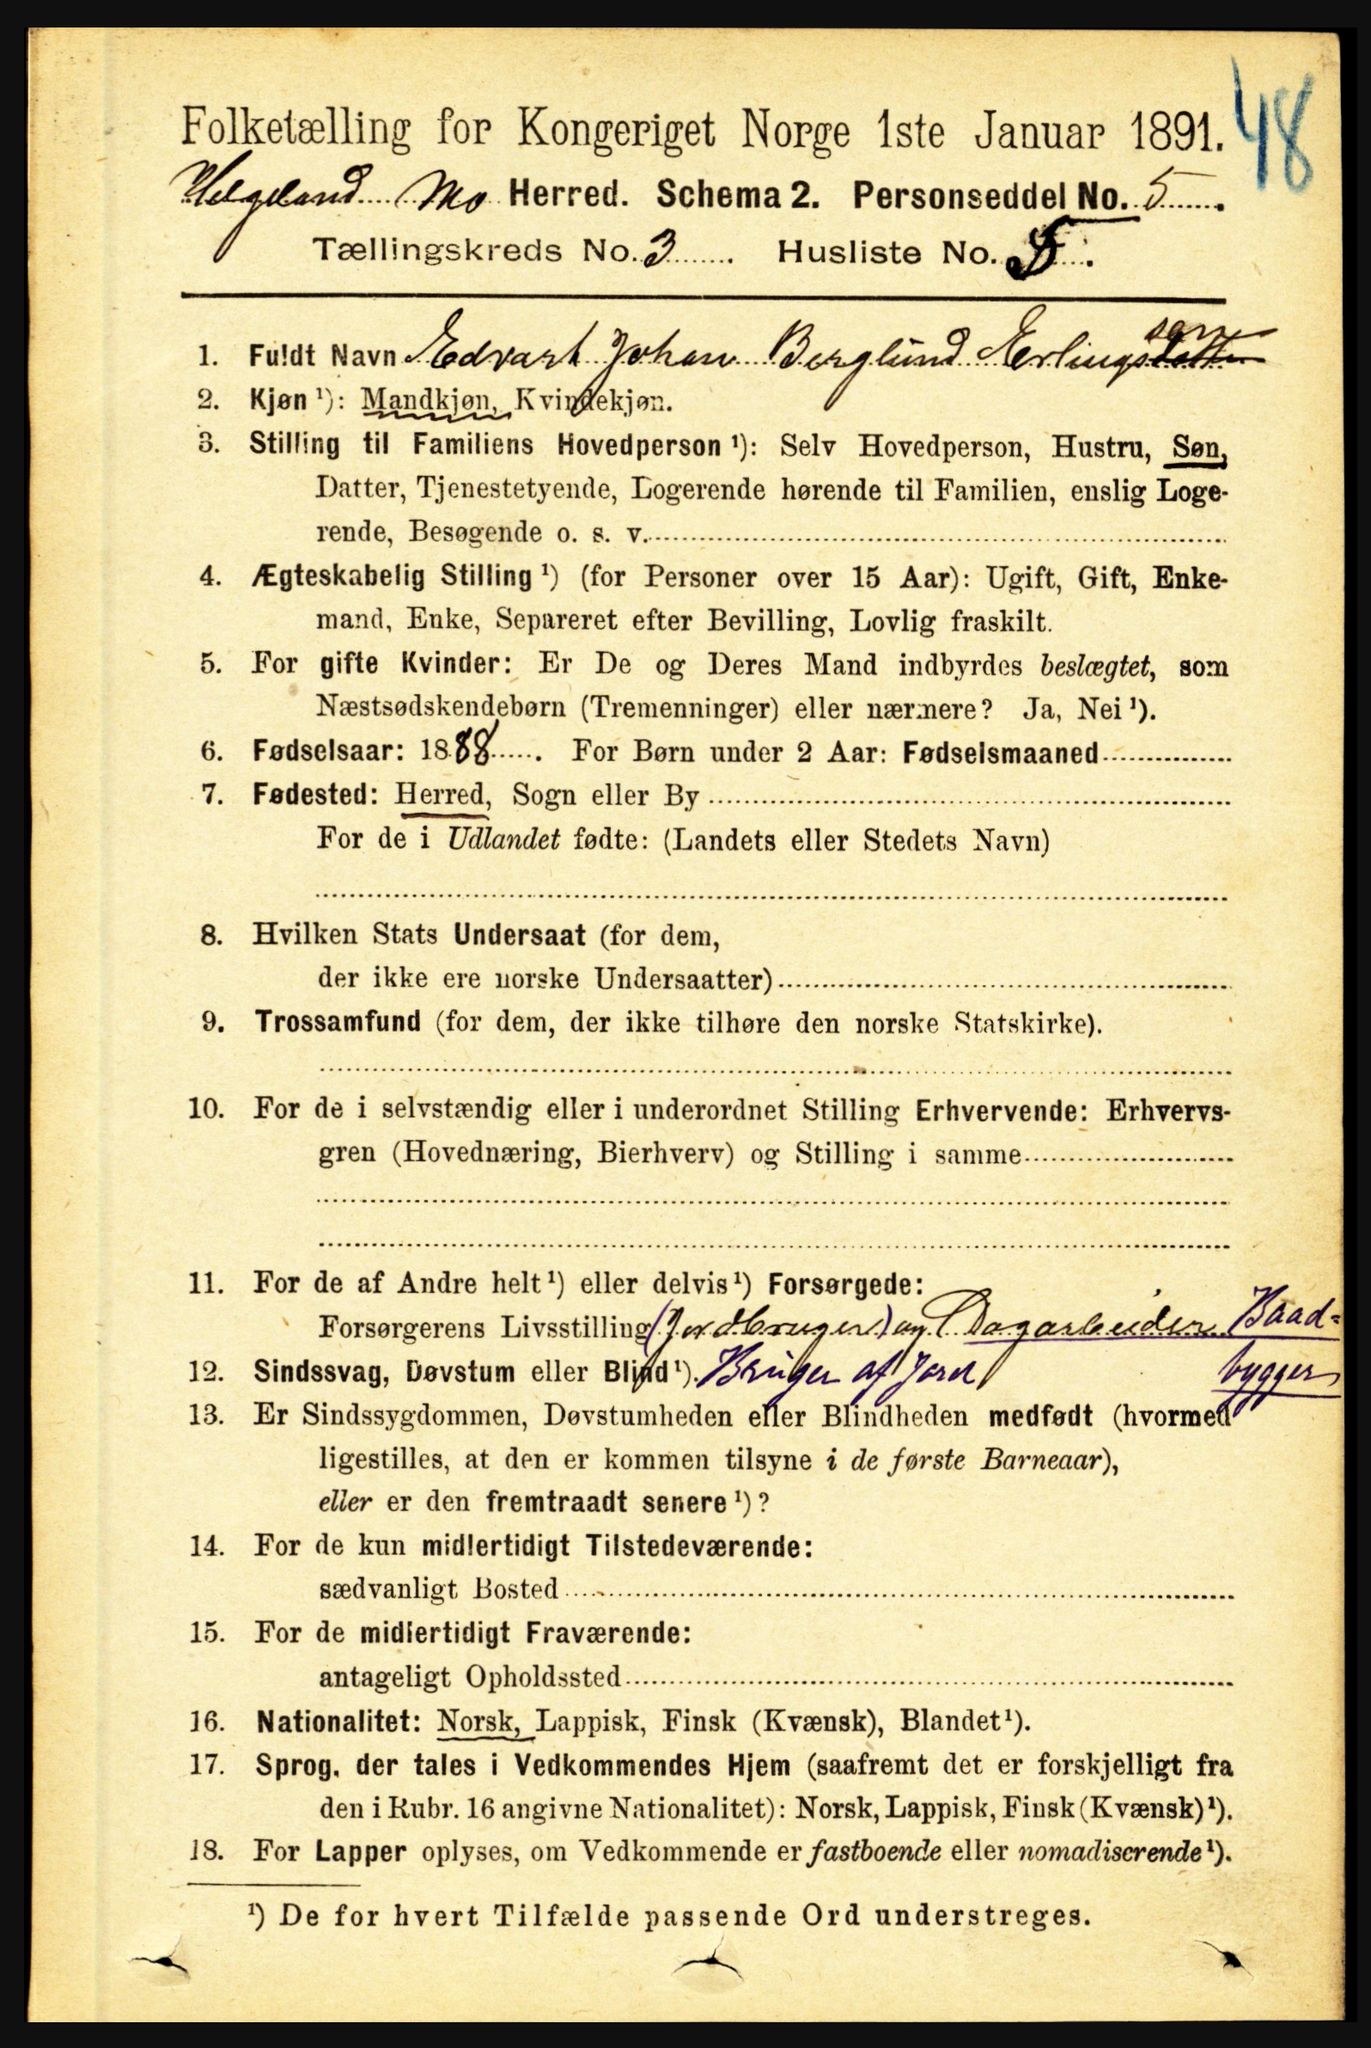 48
Folketælling for Kongeriget Norge 1ste Januar 1891.
Helgeland Mo Herred. Schema 2. Personseddel No. 5.
Tællingskreds No. 3. Husliste No. 5.
1. Fuldt Navn Edvart Johan Berglund Erlingsdatter sønn
2. Kjøn ¹): Mandkjøn, Kvindekjøn.
3. Stilling til Familiens Hovedperson ¹): Selv Hovedperson, Hustru, Søn,
Datter, Tjenestetyende, Logerende hørende til Familien, enslig Loge-
rende, Besøgende o. s. v.
4. Ægteskabelig Stilling ¹) (for Personer over 15 Aar): Ugift, Gift, Enke-
mand, Enke, Separeret efter Bevilling, Lovlig fraskilt.
5. For gifte Kvinder: Er De og Deres Mand indbyrdes beslægtet, som
Næstsødskendebørn (Tremenninger) eller nærmere? Ja, Nei ¹).
6. Fødselsaar: 1888. For Børn under 2 Aar: Fødselsmaaned
7. Fødested: Herred, Sogn eller By
For de i Udlandet fødte: (Landets eller Stedets Navn)
8. Hvilken Stats Undersaat (for dem,
der ikke ere norske Undersaatter)
9. Trossamfund (for dem, der ikke tilhøre den norske Statskirke).
10. For de i selvstændig eller i underordnet Stilling Erhvervende: Erhvervs-
gren (Hovednæring, Bierhverv) og Stilling i samme
11. For de af Andre helt ¹) eller delvis ¹) Forsørgede:
Forsørgerens Livsstilling (Jordbruger) og Dagarbeider Baad-
12. Sindssvag, Døvstum eller Blind ¹). Bruger af Jord bygger
13. Er Sindssygdommen, Døvstumheden eller Blindheden medfødt (hvormed
ligestilles, at den er kommen tilsyne i de første Barneaar),
eller er den fremtraadt senere ¹)?
14. For de kun midlertidigt Tilstedeværende:
sædvanligt Bosted
15. For de midlertidigt Fraværende:
antageligt Opholdssted
16. Nationalitet: Norsk, Lappisk, Finsk (Kvænsk), Blandet ¹).
17. Sprog, der tales i Vedkommendes Hjem (saafremt det er forskjelligt fra
den i Rubr. 16 angivne Nationalitet): Norsk, Lappisk, Finsk (Kvænsk) ¹).
18. For Lapper oplyses, om Vedkommende er fastboende eller nomadiserende ¹).
¹) De for hvert Tilfælde passende Ord understreges.